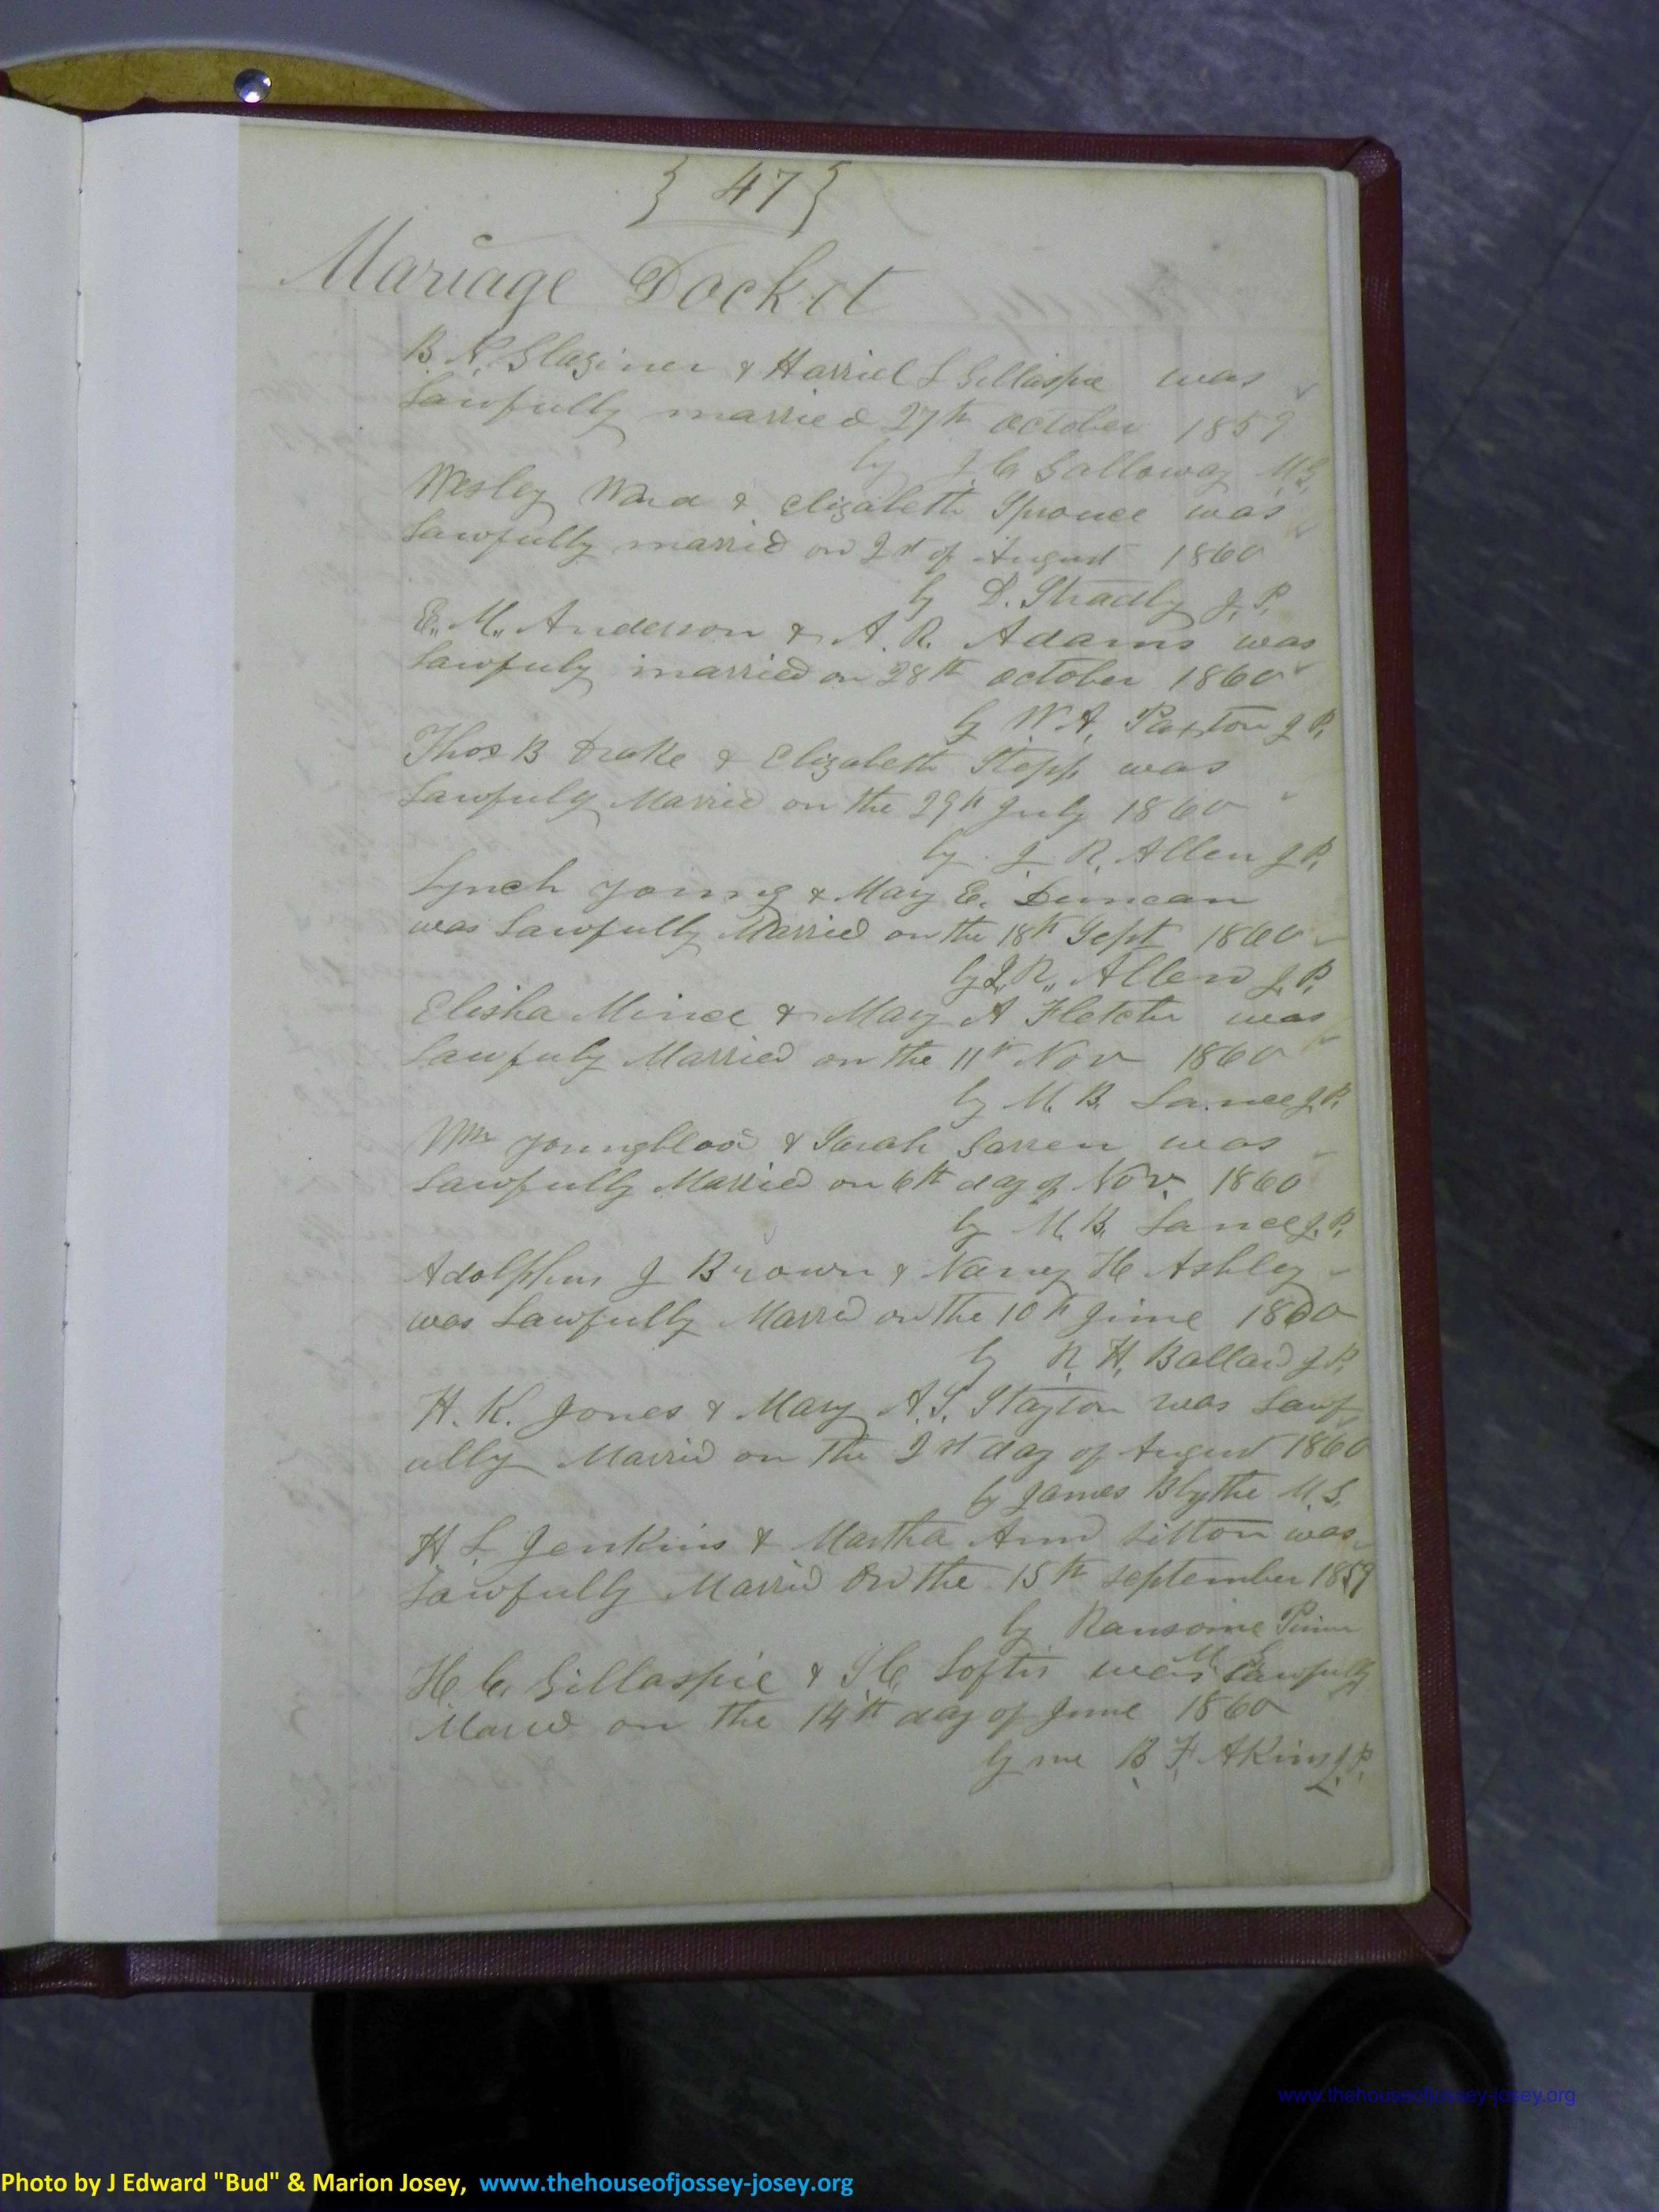 } 47 }
Mariage Docket
B. N. Glaziner & Harriel L Gillaspie was
Lawfully married 27th October 1859
by J. C. Galloway M.G.
Wesley Ward & Elizabeth Sprouce was
Lawfully married on 2d of August 1860
by D. Stradly J. P.
E. M. Anderson & A. R. Adams was
Lawfuly married on 28th October 1860
by W. A. Paxton J P.
Thos B Drake & Elizabeth Stepp was
Lawfuly Married on the 29th July 1860
by J R. Allen J P.
Lynch Young & Mary E. Duncan
was Lawfully Married on the 18th Sept 1860
by J. R. Allen J. P.
Elisha Mince & Mary A Fletcher was
Lawfuly Married on the 11th Nov 1860
by M. B. Lance J. P.
Wm Youngblood & Sarah Garren was
Lawfully Married on 6th day of Nov. 1860
by M. B. Lance J. P.
Adolphus J Brown & Nancy H Ashley
was Lawfully Marred on the 10th June 1860
by R. H. Ballard J P.
H. K. Jones & Mary A. S. Stayton was Lawf
ully Married on the 2d day of August 1860
by James Blythe M. G.
H. L. Jenkins & Martha Ann Sitton was
Lawfully Married On the 15th September 1859
by Ransome Pinner
M G
H. C. Gillaspie & Loftis was Lawfully
Married on the 14th day of June 1860
by me B. F. Akins J. P.
www.thehouseofjossey-josey.org
Photo by J Edward "Bud" & Marion Josey, www.thehouseofjossey-josey.org